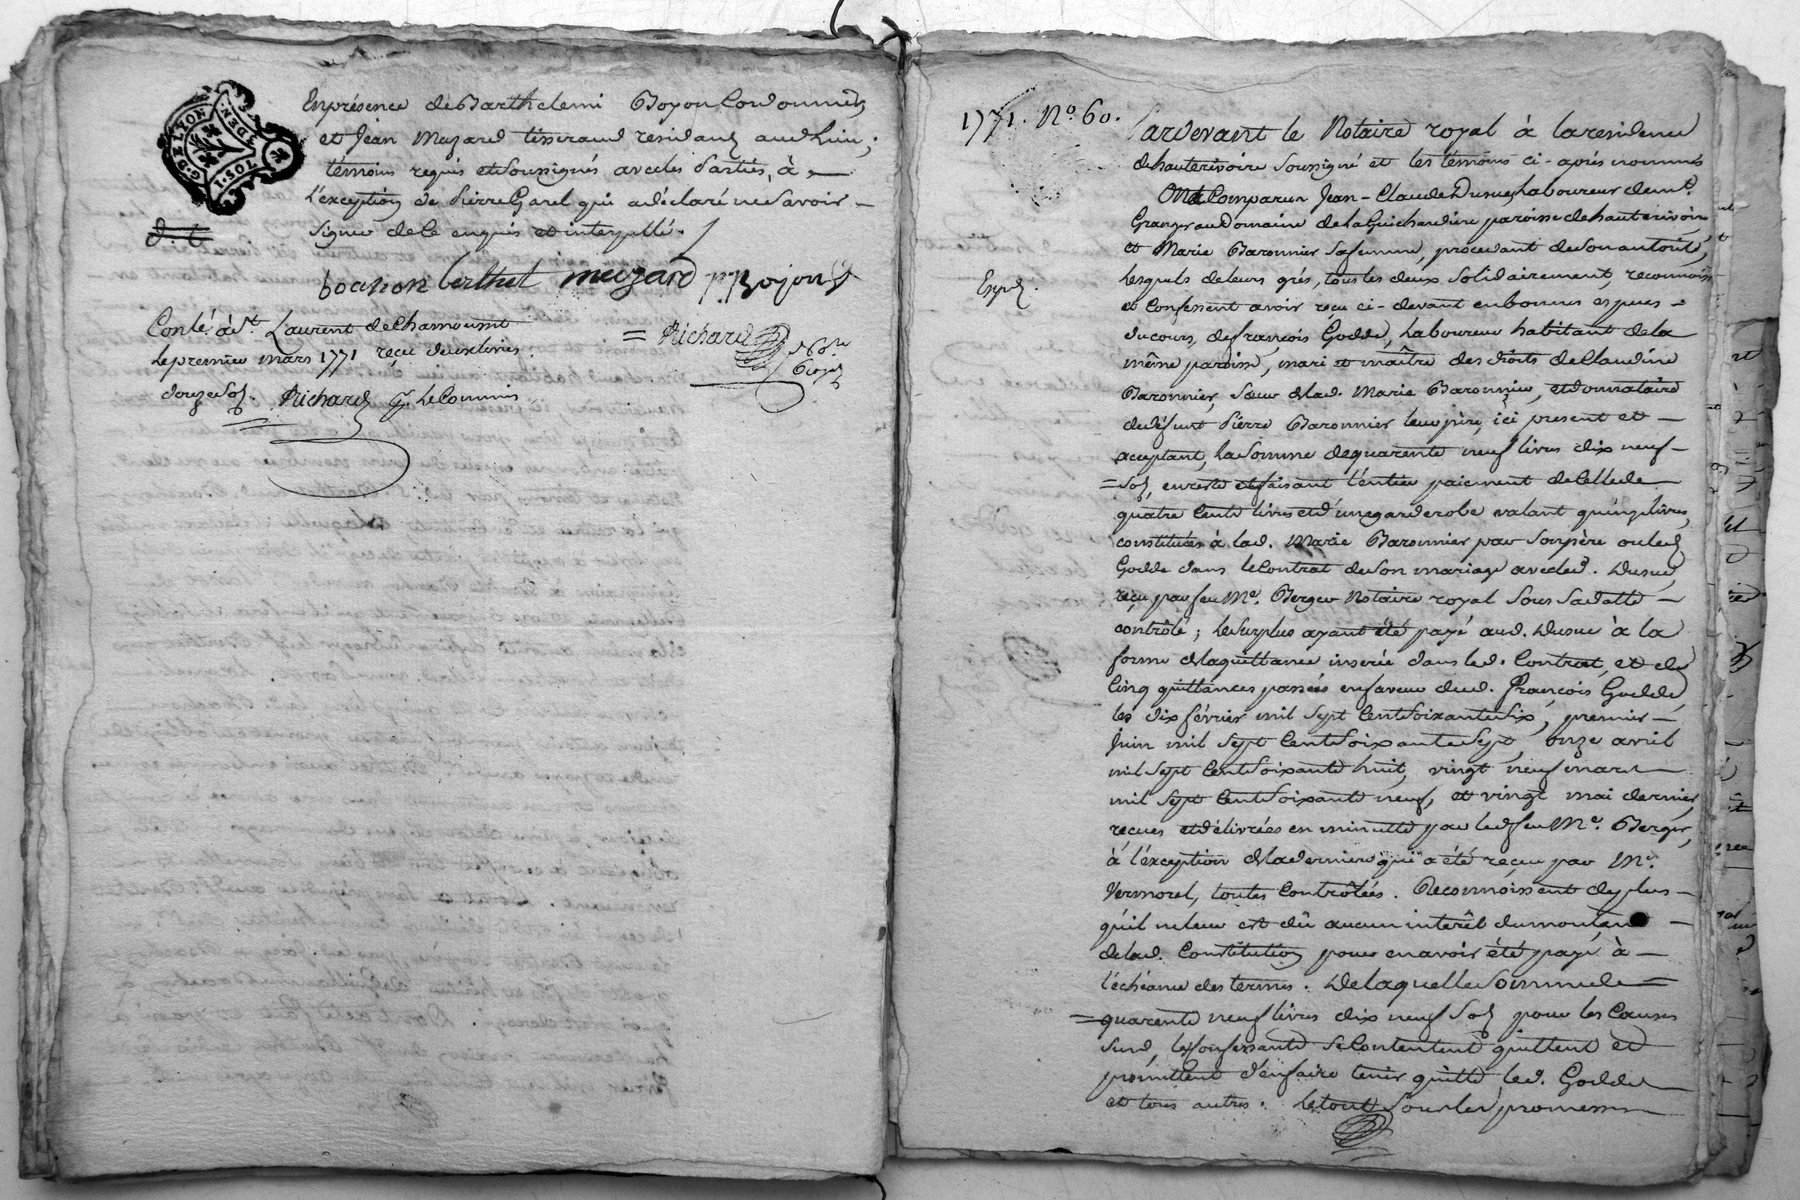 G. DE LYON
1. SOL. DEN.
En présence de Barthelemi Boyon Cordonnier,
et Jean Mazard tisseraud residans aud. Lieu;
témoins requis et Soussignés avec les Parties, à
l'éxception de Pierre Garel qui a déclaré ne Savoir
Signer de ce enquis et interpellé.
bochon berthet mezard Boyon
Richard
Conlé. à St. Laurent de Chamousset
le premier mars 1771 reçu deux livres
douze Sols. Richard Le Commis
1771. No. 60.
Pardevant le Notaire royal à la residence
de hauterivoire Soussigné et les témoins ci-après nommés
Ont Comparu Jean-Claude Dusuc Laboureur demt.
Granger au Domaine de la Guichardiere paroisse de hauterivoire
et Marie Baronnier Sa femme, procedant de Son autorité,
Lesquels de leurs grés, tous les deux Solidairement, reconnoiss
Expé.
et Confessent avoir reçu ci-devant en bonnes espèces
du cours, de françois Godde, Laboureur habitant de la
même paroisse, mari et maître des droits de Claudine
Baronnier, Sœur de lad. Marie Baronnier, et donnataire
du défunt Pierre Baronnier leur père, ici present et
acceptant, la Somme de quarante neuf livres dix neuf
Sols, en reste et faisant l'entier paiement de Celle de
quatre Cents livres et d'une garderobe valant quinze livres,
constituées à lad. Marie Baronnier par Son père ou led.
Godde dans le Contrat de Son mariage avec led. Dusuc,
reçu par feu Me. Berger Notaire royal Sous Sa datte
contrôlé; le Surplus ayant été payé aud. Dusuc à la
forme de la quittance inserée dans led. Contrat, et de
Cinq quittances passées en faveur dud. François Godde,
les dix février mil Sept Cent Soixante Six, premier
Juin mil Sept Cent Soixante Sept, onze avril
mil Sept Cent Soixante huit, vingt neuf mars
mil Sept Cent Soixante neuf, et vingt mai dernier,
reçues et délivrées en minutte par led. feu Me. Berger,
à l'éxception de la derniere qui a été reçue par Me.
Vermorel, toutes Contrôlées. Reconnoissent de plus
qu'il ne leur est dû aucun intérêt du montant
de lad. Constitution pour en avoir été payé à
l'échéance des termes. De laquelle Somme de
quarante neuf livres dix neuf Sols pour les Causes
Susd. les Confessants Se Contentent quittent et
promettent d'en faire tenir quitte led. Godde
et tous autres. Le tout Sous les promesses